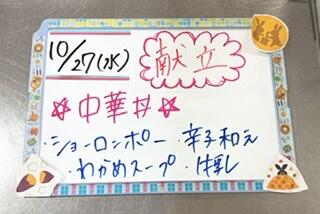 10/27(水) 献立
☆中華丼☆
・ショーロンポー ・辛子和え
・わかめスープ ・牛乳